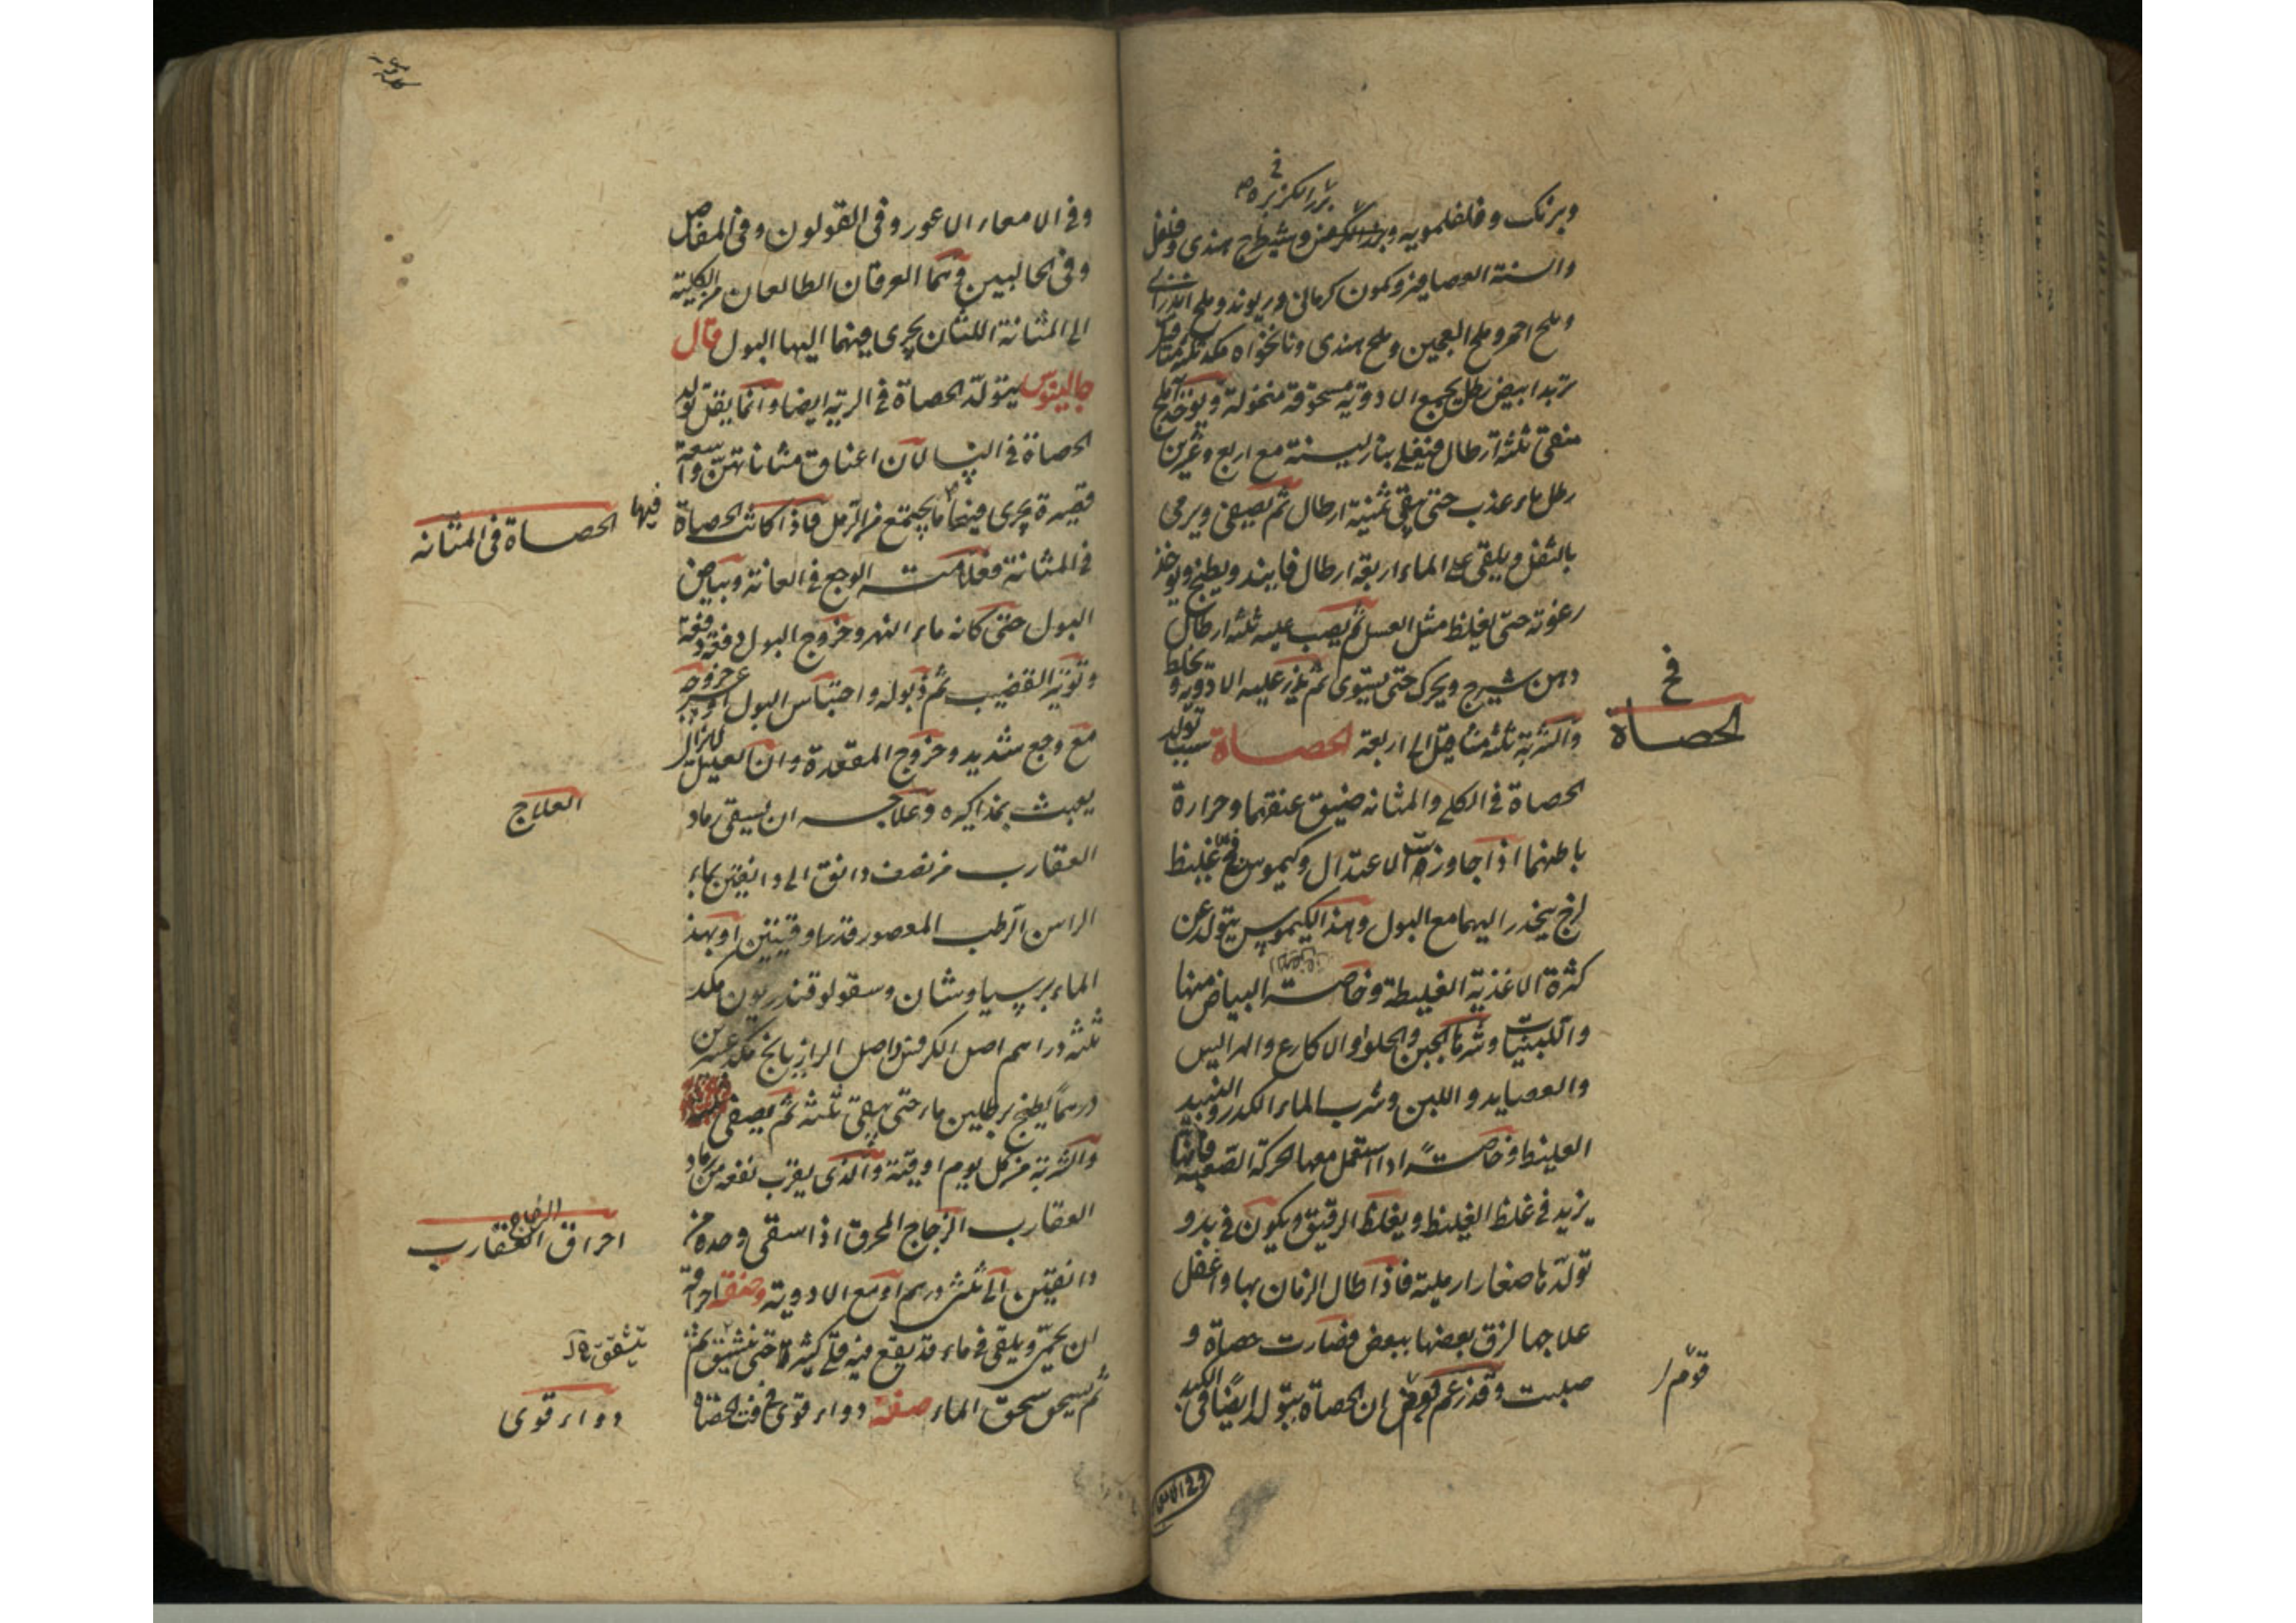 في
بزر الكزبرة
وبرنك وفلفلمويه وبزر الكرفس وشيطرج هندى وفلفل
والسنة العصافير وكمون كرمانى وريوند وملح اندرانى
وملح احمر وملح العجين وملح هندى ونانخواه مكد ثلثة مثاقيل
تربد ابيض رطل يجمع الادوية مسحوقة منخولة ويوخذ املج
منقى ثلثة ارطال فيغلى بنار لينة مع اربع وعشرين
رطل ماء عذب حتى يبقى ثمنية ارطال ثم يصفى ويرمى
بالثفل ويلقى على الماء اربعة ارطال فانيد ويطبخ ويوخذ
رغوته حتى يغلظ مثل العسل ثم يصب عليه ثلثة ارطال
دهن شيرج ويحرك حتى يستوى ثم يذر عليه الادوية ويخلط
والشربة ثلثة مثاقيل الى اربعة الحصاة سبب تولد
في
الحصاة
الحصاة في الكلى والمثانه ضيق عنقهما وحرارة
باطنهما اذا جاوزت الاعتدال وكيموس فج غليظ
لزج ينحدر اليهما مع البول وهذا الكيموس يتولد عن
كثرة الاغذية الغليظة وخاصة البياض منها
واللبنيات وشرب الجبن والحلوا والاكارع والهرايس
والعصايد واللبن وشرب الماء الكدر والنبيذ
الغليظ وخاصة اذا استعمل معها الحركة الصعبة فانها
يزيد في غلظ الغليظ ويغلظ الرقيق ويكون في بدو
تولدها صغارا رملية فاذا طال الزمان بها واغفل
علاجها لزق بعضها ببعض فصارت حصاة و
صلبت وقد زعم قوم ان الحصاة يتولد ايضا في الكبد
قوم
وفي الامعاء
وفي الامعاء الاعور وفي القولون وفي المفاصل
وفي الحالبين وهما العرقان الطالعان من الكلية
الى المثانة اللتان يجرى فيهما اليها البول قال
جالينوس يتولد الحصاة في الرية ايضا وانما يقل تولد
الحصاة في النسا لان اعناق مثاناتهن واسعة
قصيرة يجرى فيها ما يجتمع من الرمل فاذا كانت الحصاة
فيها
الحصاة في المثانه
في المثانة فعلامته الوجع في العانة وبياض
البول حتى كانه ماء النهر وخروج البول دفعة دفعة
وتوتر القضيب ثم ذبوله واحتباس البول او عسر خروجه
مع وجع شديد وخروج المقعدة وان العليل لايزال
يعبث بمذاكيره وعلاجه ان يسقى رماد
العلاج
العقارب من نصف دانق الى دانقين بماء
الراسن الرطب المعصور قدر اوقيتين او بهذ
الماء برسياوشان وسقولوقندريون مكد
ثلثة دراهم اصل الكرفس واصل الرازيانج مكد عشرين
درهما يطبخ برطلين ماء حتى يبقى ثلثه ثم يصفى
والشربة من كل يوم اوقية والذى يقرب نفعه من رماد
العقارب الزجاج المحرق اذا سقى وحده من
الزجاج
احراق العقارب
دانقين الى ثلث درهم او مع الادوية وصفة احراقه
ان يحمى ويلقى في ماء قد يقع فيه قلى كثيرة حتى يتشقق ثم
يتشقق
ثم يسحق سحق الماء صفة دواء قوى في فت الحصاة
دواء قوى